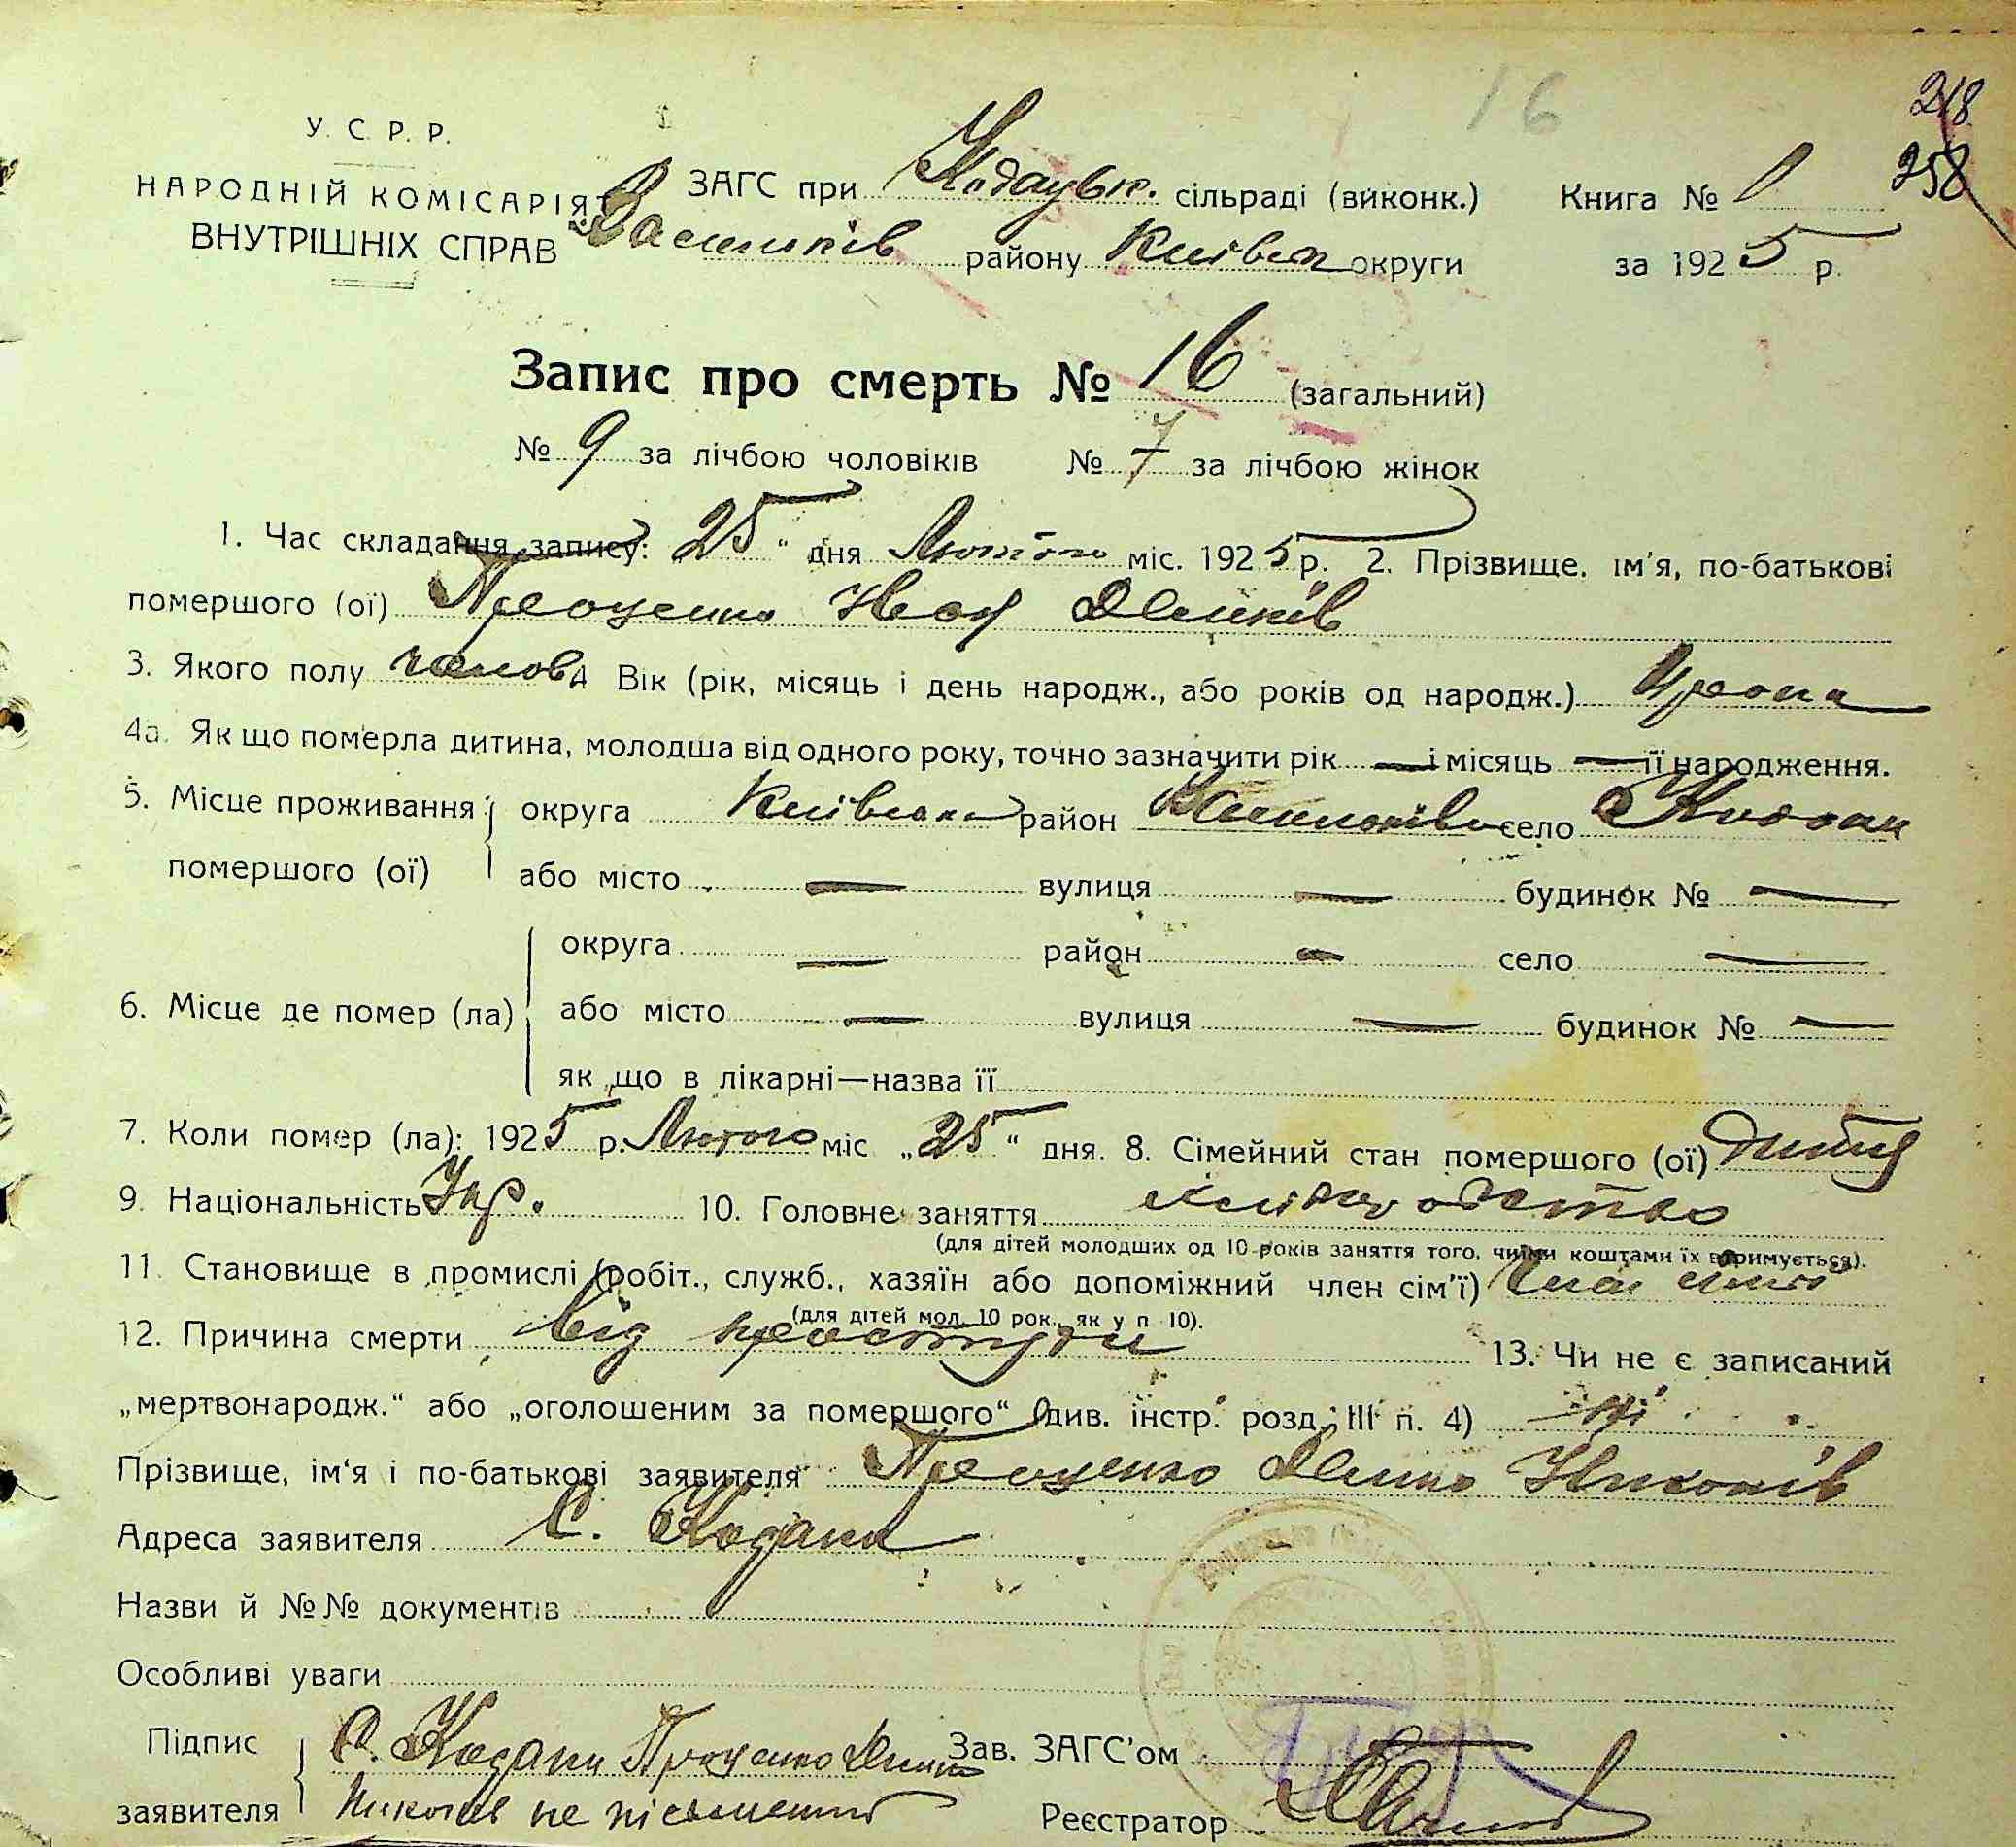 16
218
258
У. С. Р. Р.
НАРОДНІЙ КОМІСАРІЯТ
ВНУТРІШНІХ СПРАВ
ЗАГС при Кодацьк. сільраді (виконк.) Книга № 1
Васильків району Київськ округи за 1925 р.
Запис про смерть № 16 (загальний)
№ 9 за лічбою чоловіків № 7 за лічбою жінок
1. Час складання запису: „25“ дня Лютого міс. 1925 р. 2. Прізвище, ім'я, по-батькові
помершого (ої) Проценко Іван
3. Якого полу чолов 4 Вік (рік, місяць і день народж., або років од народж.)
4а. Як що померла дитина, молодша від одного року, точно зазначити рік — і місяць — її народження.
5. Місце проживання помершого (ої) округа Київська район Васильків село Кодаки
або місто — вулиця — будинок № —
6. Місце де помер (ла) округа — район — село —
або місто — вулиця — будинок № —
як що в лікарні—назва її
7. Коли помер (ла): 1925 р. Лютого міс „25“ дня. 8. Сімейний стан помершого (ої) дитина
9. Національність Укр. 10. Головне заняття хліборобство
(для дітей молодших од 10 років заняття того, чиїми коштами їх втримується).
11. Становище в промислі (робіт., служб., хазяїн або допоміжний член сім'ї) член сімї
(для дітей мол. 10 рок., як у п 10).
12. Причина смерти від простуди 13. Чи не є записаний
„мертвонародж.“ або „оголошеним за помершого“ (див. інстр. розд. III п. 4) ні
Прізвище, ім'я і по-батькові заявителя Проценко Никонів
Адреса заявителя С. Кодаки
Назви й №№ документів
Особливі уваги
Підпис заявителя С. Кодаки Проценко
Никонів не пісьменний
Зав. ЗАГС'ом
Реєстратор